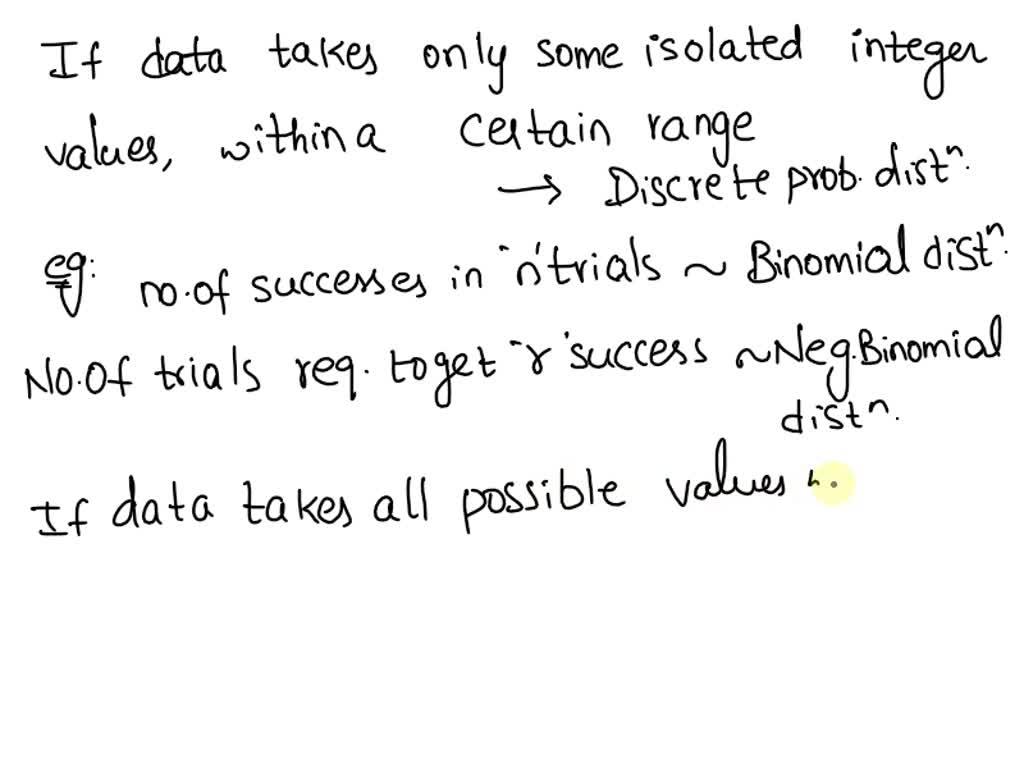 If data takes only some isolated integer
values, within a certain range
→ Discrete prob. distⁿ.
eg: no. of successes in 'n' trials ~ Binomial distⁿ.
No. of trials req. to get 'r' success ~ Neg. Binomial
distⁿ.
If data takes all possible values